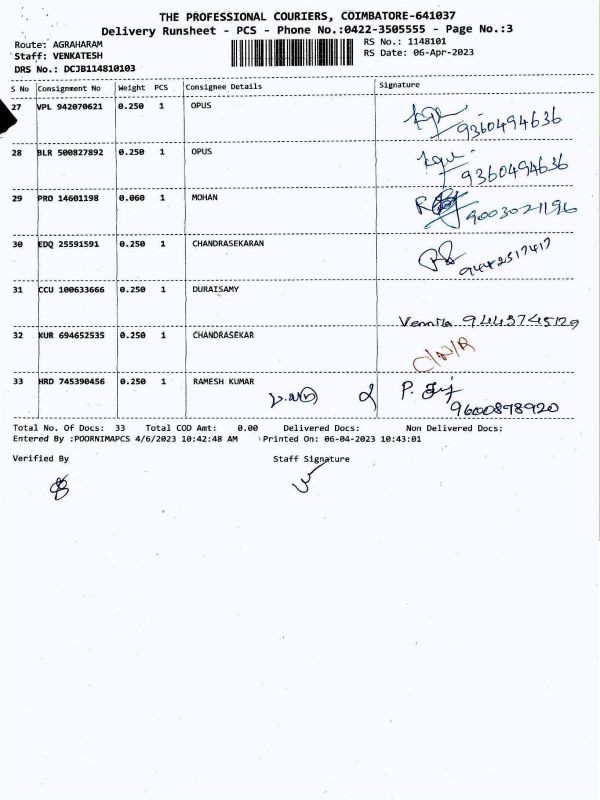 THE PROFESSIONAL COURIERS, COIMBATORE-641037
Delivery Runsheet - PCS - Phone No.:0422-3505555 - Page No.:3
Route: AGRAHARAM RS No.: 1148101
Staff: VENKATESH RS Date: 06-Apr-2023
DRS No.: DCJB114810103
S No Consignment No Weight PCS Consignee Details Signature
27 VPL 942070621 0.250 1 OPUS 9360494636
28 BLR 500827892 0.250 1 OPUS 9360494636
29 PRO 14601198 0.060 1 MOHAN 9003021196
30 EDQ 25591591 0.250 1 CHANDRASEKARAN
31 CCU 100633666 0.250 1 DURAISAMY
32 KUR 694652535 0.250 1 CHANDRASEKAR C/N/R
33 HRD 745390456 0.250 1 RAMESH KUMAR P. 9600898920
Total No. Of Docs: 33 Total COD Amt: 0.00 Delivered Docs: Non Delivered Docs:
Entered By :POORNIMAPCS 4/6/2023 10:42:48 AM Printed On: 06-04-2023 10:43:01
Verified By Staff Signature